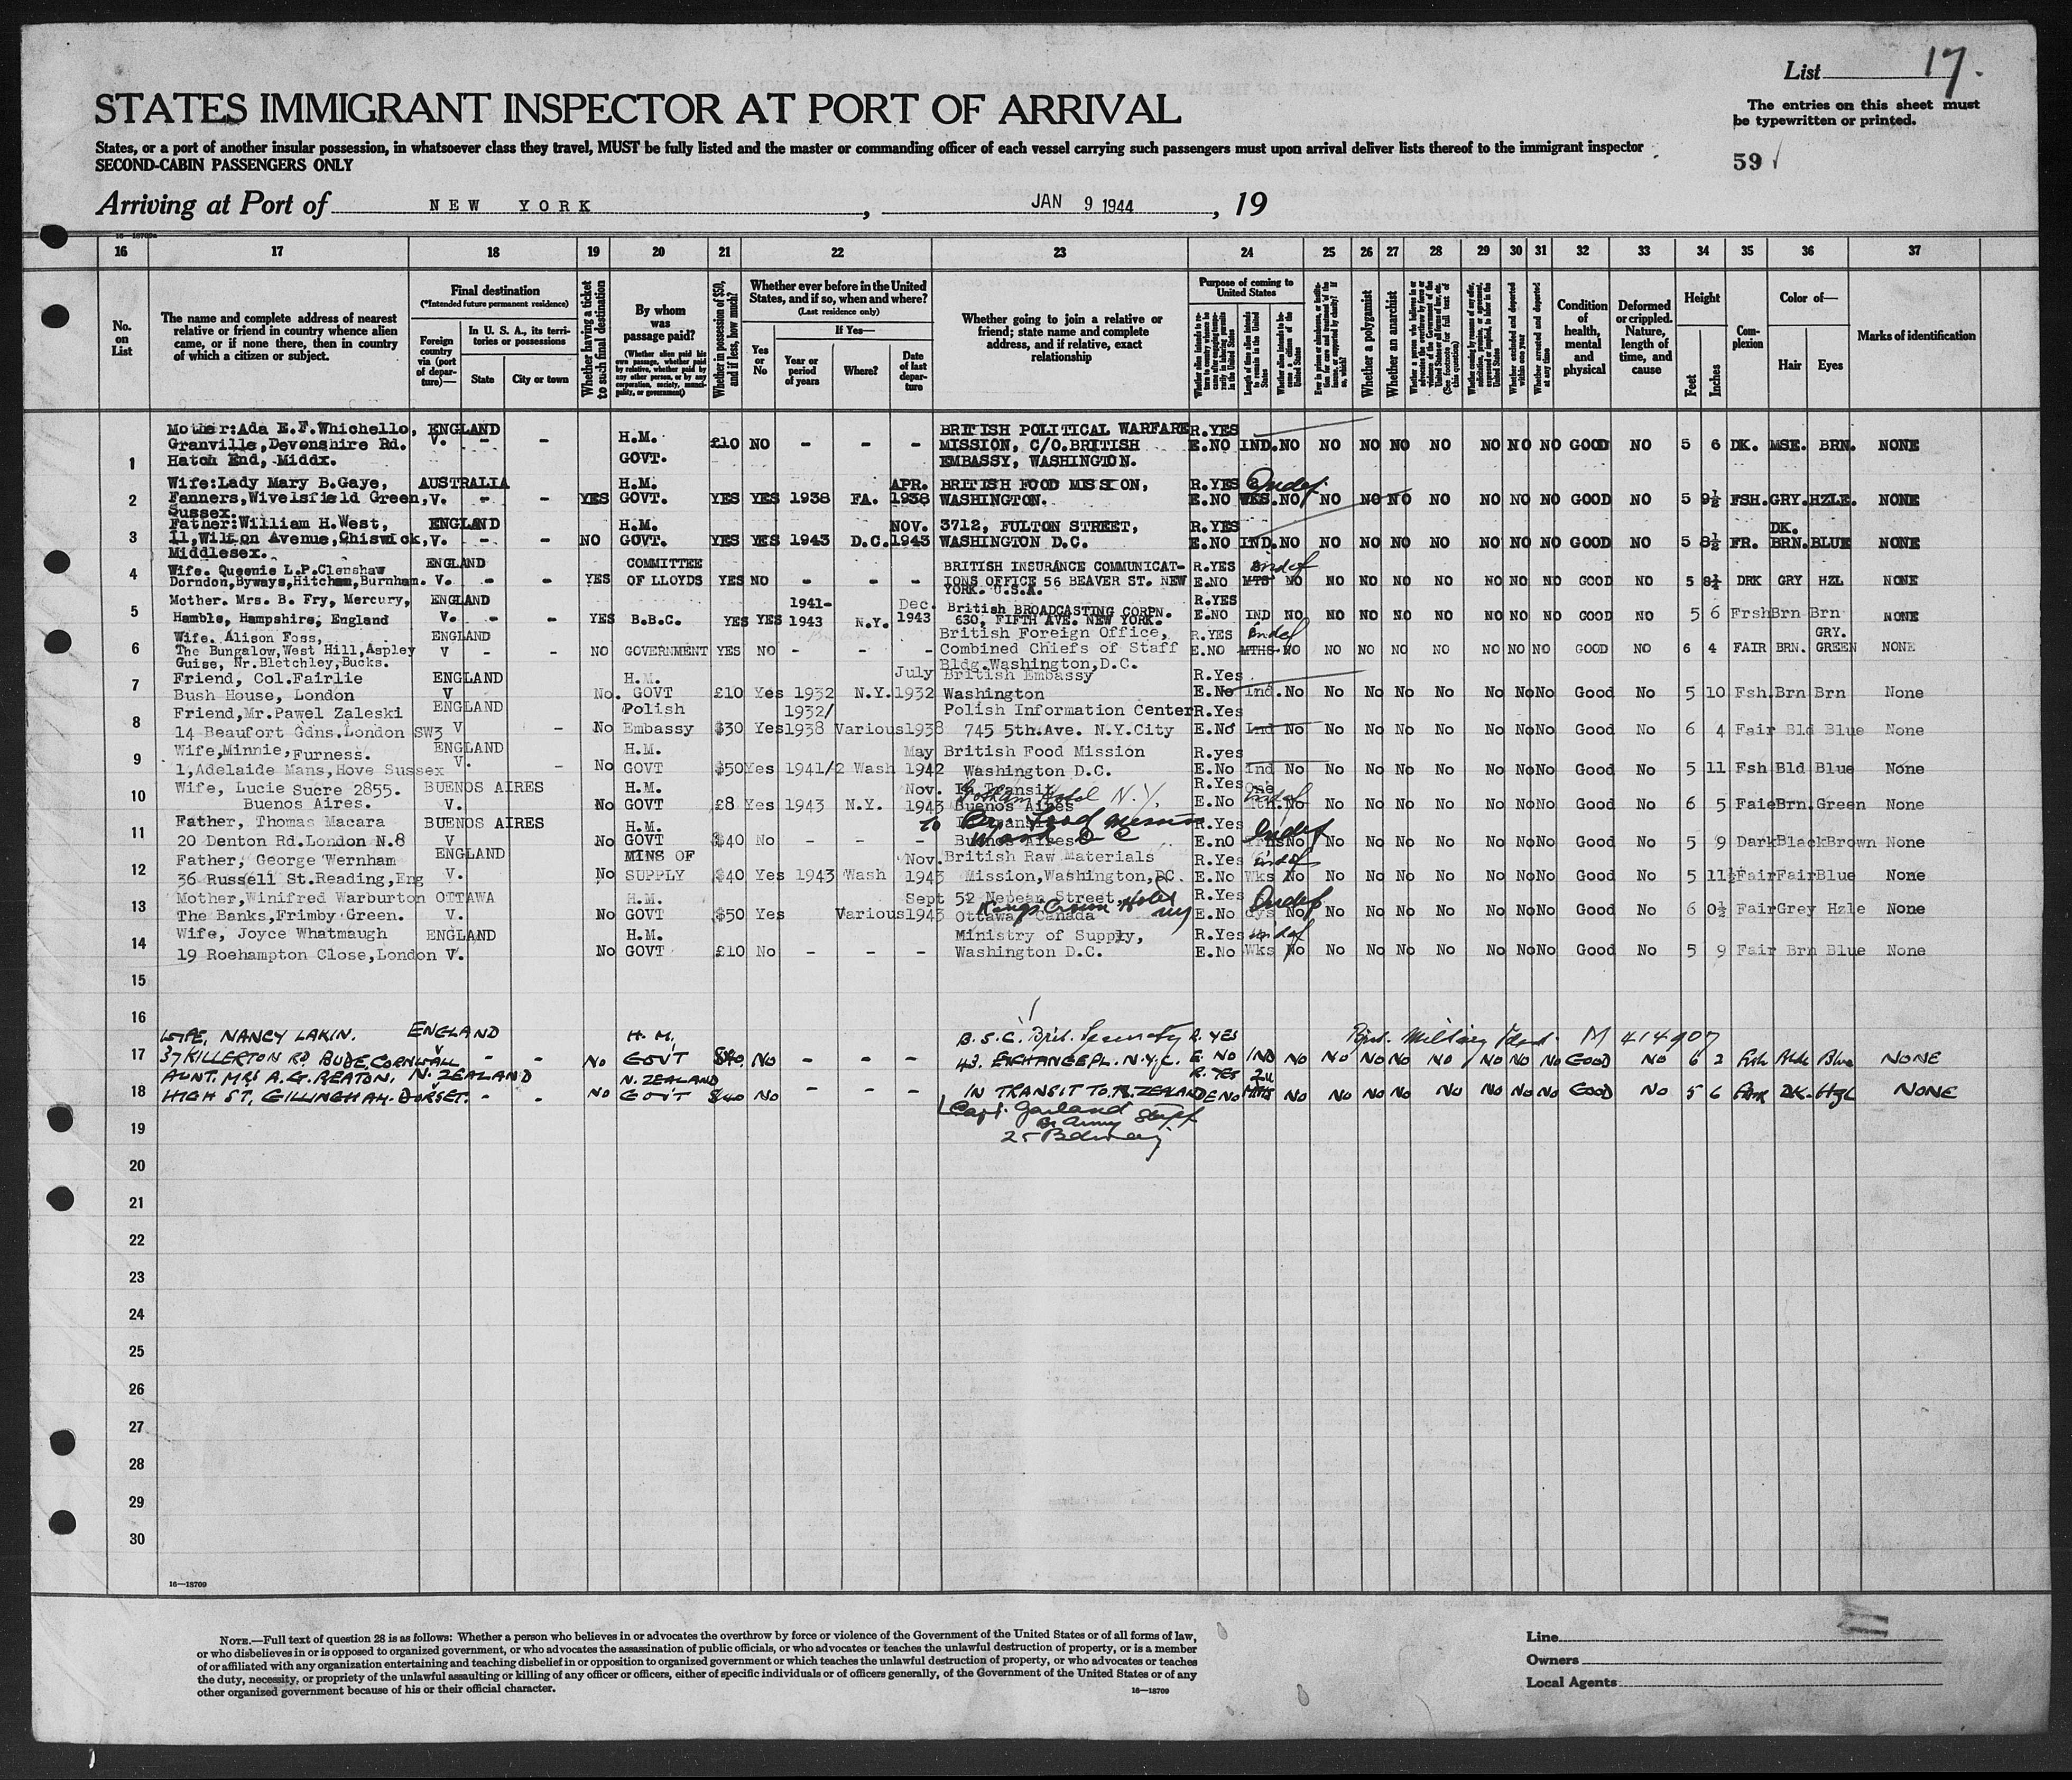 List 17.
The entries on this sheet must
be typewritten or printed.
STATES IMMIGRANT INSPECTOR AT PORT OF ARRIVAL
States, or a port of another insular possession, in whatsoever class they travel, MUST be fully listed and the master or commanding officer of each vessel carrying such passengers must upon arrival deliver lists thereof to the immigrant inspector
SECOND-CABIN PASSENGERS ONLY
59
Arriving at Port of NEW YORK, JAN 9 1944, 19
16 17 18 19 20 21 22 23 24 25 26 27 28 29 30 31 32 33 34 35 36 37
No. on List
The name and complete address of nearest relative or friend in country whence alien came, or if none there, then in country of which a citizen or subject.
Final destination
(*Intended future permanent residence)
Foreign country via (port of departure)—
In U. S. A., its territories or possessions
State
City or town
Whether having a ticket to such final destination
By whom was passage paid?
(Whether alien paid his own passage, whether paid by relative, whether paid by any other person, or by any corporation, society, municipality, or government)
Whether in possession of $50, and if less, how much?
Whether ever before in the United States, and if so, when and where?
(Last residence only)
Yes or No
If Yes—
Year or period of years
Where?
Date of last departure
Whether going to join a relative or friend; state name and complete address, and if relative, exact relationship
Purpose of coming to United States
Length of time alien intends to remain in the United States
Whether alien intends to become a citizen of the United States
Whether a polygamist
Whether an anarchist
Whether excluded and deported within one year
Whether arrested and deported at any time
Condition of health, mental and physical
Deformed or crippled. Nature, length of time, and cause
Height
Feet
Inches
Complexion
Color of—
Hair
Eyes
Marks of identification
Mother:Ada E.F.Whichello, ENGLAND BRITISH POLITICAL WARFARE R.YES
Granville,Devonshire Rd. V. - - H.M. £10 NO - - - MISSION, C/O.BRITISH E.NO IND. NO NO NO NO NO NO NO NO GOOD NO 5 6 DK. MSE. BRN. NONE
1 Hatch End, Middx. GOVT. EMBASSY, WASHINGTON.
Wife:Lady Mary B.Gaye, AUSTRALIA H.M. APR. BRITISH FOOD MISSION, R.YES Indef
2 Fanners,Wivelsfield Green, V. - - YES GOVT. YES YES 1938 FA. 1938 WASHINGTON. E.NO WKS. NO NO NO NO NO NO NO NO GOOD NO 5 9½ FSH. GRY. HZLE. NONE
Sussex.
Father:William H.West, ENGLAND H.M. NOV. 3712, FULTON STREET, R.YES DK.
3 11,Wilson Avenue,Chiswick, V. - - NO GOVT. YES YES 1943 D.C. 1943 WASHINGTON D.C. E.NO IND. NO NO NO NO NO NO NO NO GOOD NO 5 8½ FR. BRN. BLUE NONE
Middlesex.
4 Wife. Queenie L.P.Clenshaw ENGLAND COMMITTEE BRITISH INSURANCE COMMUNICAT- R.YES indef
Dorndon,Byways,Hitcham,Burnham. V. - - YES OF LLOYDS YES NO - - - IONS OFFICE 56 BEAVER ST. NEW E.NO MTS NO NO NO NO NO NO NO NO GOOD NO 5 8½ DRK GRY HZL NONE
YORK. U.S.A.
5 Mother. Mrs. B. Fry, Mercury, ENGLAND 1941- Dec. British BROADCASTING CORPN. R.YES
Hamble, Hampshire, England V. - - YES B.B.C. YES YES 1943 N.Y. 1943 630, FIFTH AVE. NEW YORK. E.NO IND NO NO NO NO NO NO NO NO GOOD NO 5 6 Frsh Brn Brn NONE
Wife. Alison Foss, ENGLAND British Foreign Office, R.YES indef GRY.
6 The Bungalow,West Hill,Aspley V - - NO GOVERNMENT YES NO - - - Combined Chiefs of Staff E.NO MTHS NO NO NO NO NO NO NO NO GOOD NO 6 4 FAIR BRN. GREEN NONE
Guise, Nr.Bletchley,Bucks. Bldg.Washington,D.C.
7 Friend, Col.Fairlie ENGLAND H.M. July British Embassy R.Yes
Bush House, London V No. GOVT £10 Yes 1932 N.Y. 1932 Washington E.No Ind. No No No No No No No No Good No 5 10 Fsh. Brn Brn None
8 Friend,Mr.Pawel Zaleski ENGLAND Polish 1932/ Polish Information Center R.Yes
14 Beaufort Gdns.London SW3 V - No Embassy $30 Yes 1938 Various 1938 745 5th.Ave. N.Y.City E.No Ind No No No No No No No No Good No 6 4 Fair Bld Blue None
9 Wife,Minnie,Furness. ENGLAND H.M. May British Food Mission R.yes
1,Adelaide Mans,Hove Sussex V. - No GOVT $50 Yes 1941/2 Wash 1942 Washington D.C. E.No Ind No No No No No No No No Good No 5 11 Fsh Bld Blue None
10 Wife, Lucie Sucre 2855. BUENOS AIRES H.M. Nov. In Transit R.Yes One
Buenos Aires. V. No GOVT £8 Yes 1943 N.Y. 1943 Buenos Aires Gotham Hotel N.Y. E.No Mth. indef No No No No No No No No Good No 6 5 Faie Brn. Green None
11 Father, Thomas Macara BUENOS AIRES H.M. to Food Mission R.Yes
20 Denton Rd.London N.8 V No GOVT $40 No - - - Buenos Aires Wash DC E.nO Indef No No No No No No No No Good No 5 9 Dark Black Brown None
12 Father, George Wernham ENGLAND MINS OF Nov. British Raw Materials R.Yes indef
36 Russell St.Reading,Eng V. No SUPPLY $40 Yes 1943 Wash 1943 Mission,Washington,DC. E.No Wks No No No No No No No No Good No 5 11½ Fair Fair Blue None
13 Mother,Winifred Warburton OTTAWA H.M. Sept 52 Nepean Street, R.Yes Indef
The Banks,Frimby Green. V. No GOVT $50 Yes Various 1943 Ottawa, Canada Kings Crown Hotel NY E.No dys No No No No No No No No Good No 6 0½ Fair Grey Hzle None
14 Wife, Joyce Whatmaugh ENGLAND H.M. Ministry of Supply, R.Yes indef
19 Roehampton Close,London V. No GOVT £10 No - - - Washington D.C. E.No Wks No No No No No No No No Good No 5 9 Fair Brn Blue None
15
16
WIFE, NANCY LAKIN. ENGLAND H.M. B.S.C. Brit. Security R. YES Brit. Military Ident. M 414907
17 37 KILLERTON RD BUDE, CORNWALL V - - NO GOVT $40 NO - - - 43. EXCHANGE PL. N.Y.C. E. NO IND NO NO NO NO NO NO NO NO GOOD NO 6 2 Fsh Blde Blue NONE
AUNT. MRS A.G. REATON. N. ZEALAND N. ZEALAND R. YES
18 HIGH ST, GILLINGHAM. DORSET. V - - NO GOVT $40 NO - - - IN TRANSIT TO N. ZEALAND E NO MTHS NO NO NO NO NO NO NO NO GOOD NO 5 6 DK. Hzl NONE
Capt. Garland
19 Br Army Staff
25 Bdway
20
21
22
23
24
25
26
27
28
29
30
16—18709
NOTE.—Full text of question 28 is as follows: Whether a person who believes in or advocates the overthrow by force or violence of the Government of the United States or of all forms of law,
or who disbelieves in or is opposed to organized government, or who advocates the assassination of public officials, or who advocates or teaches the unlawful destruction of property, or is a member
of or affiliated with any organization entertaining and teaching disbelief in or opposition to organized government or which teaches the unlawful destruction of property, or who advocates or teaches
the duty, necessity, or propriety of the unlawful assaulting or killing of any officer or officers, either of specific individuals or of officers generally, of the Government of the United States or of any
other organized government because of his or their official character.
16—18709
Line
Owners
Local Agents